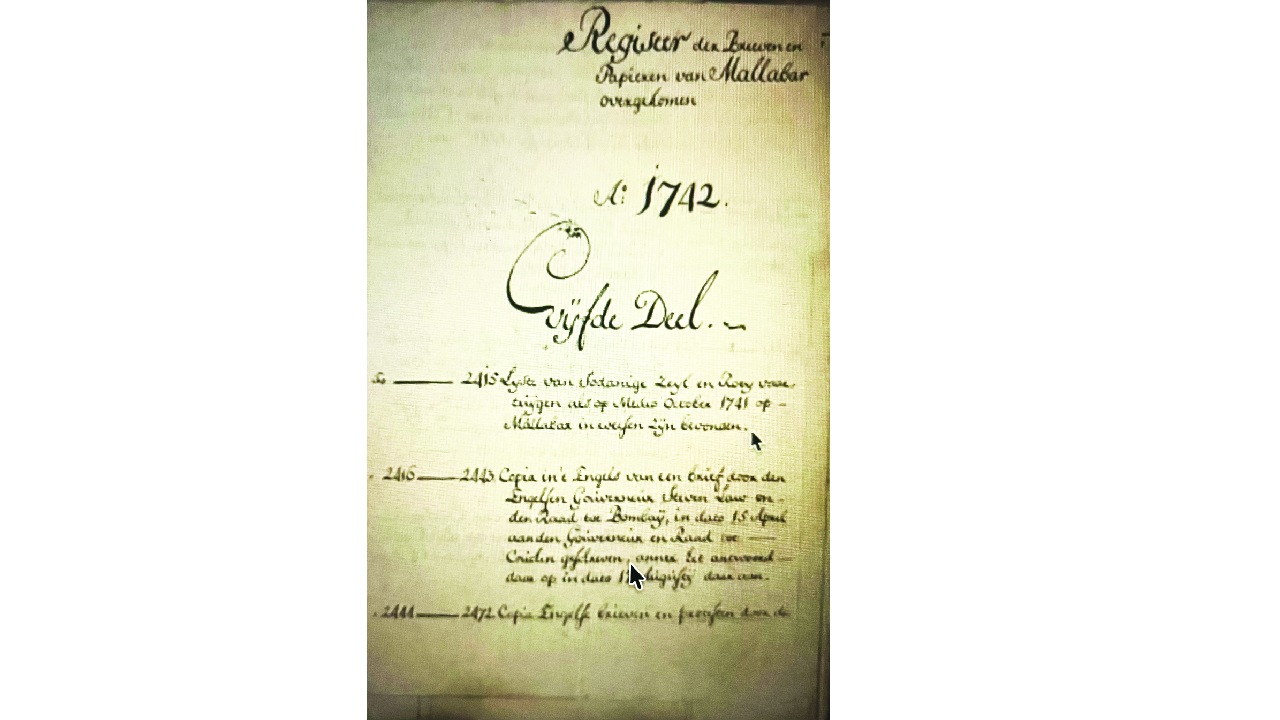 Register der Brieven en
Papieren van Mallabar
overgekomen
Ao: 1742.
Vijfde Deel.
2415 Lyste van sodanige Zeyl en Roey vaar,
tuijgen als op Medio October 1741 op
Mallabar in weesen zijn bevonden.
2416 2443 Copia in't Engels van een brief door den
Engelsen Gouverneur Steven Law en
den Raad tot Bombaij, in dato 15 April
aan den Gouverneur en Raad tot
Coichin geschreven, annex het antwoord
daar op in dato daar aan.
2444 2472 Copia Engelse brieven en protesten door de